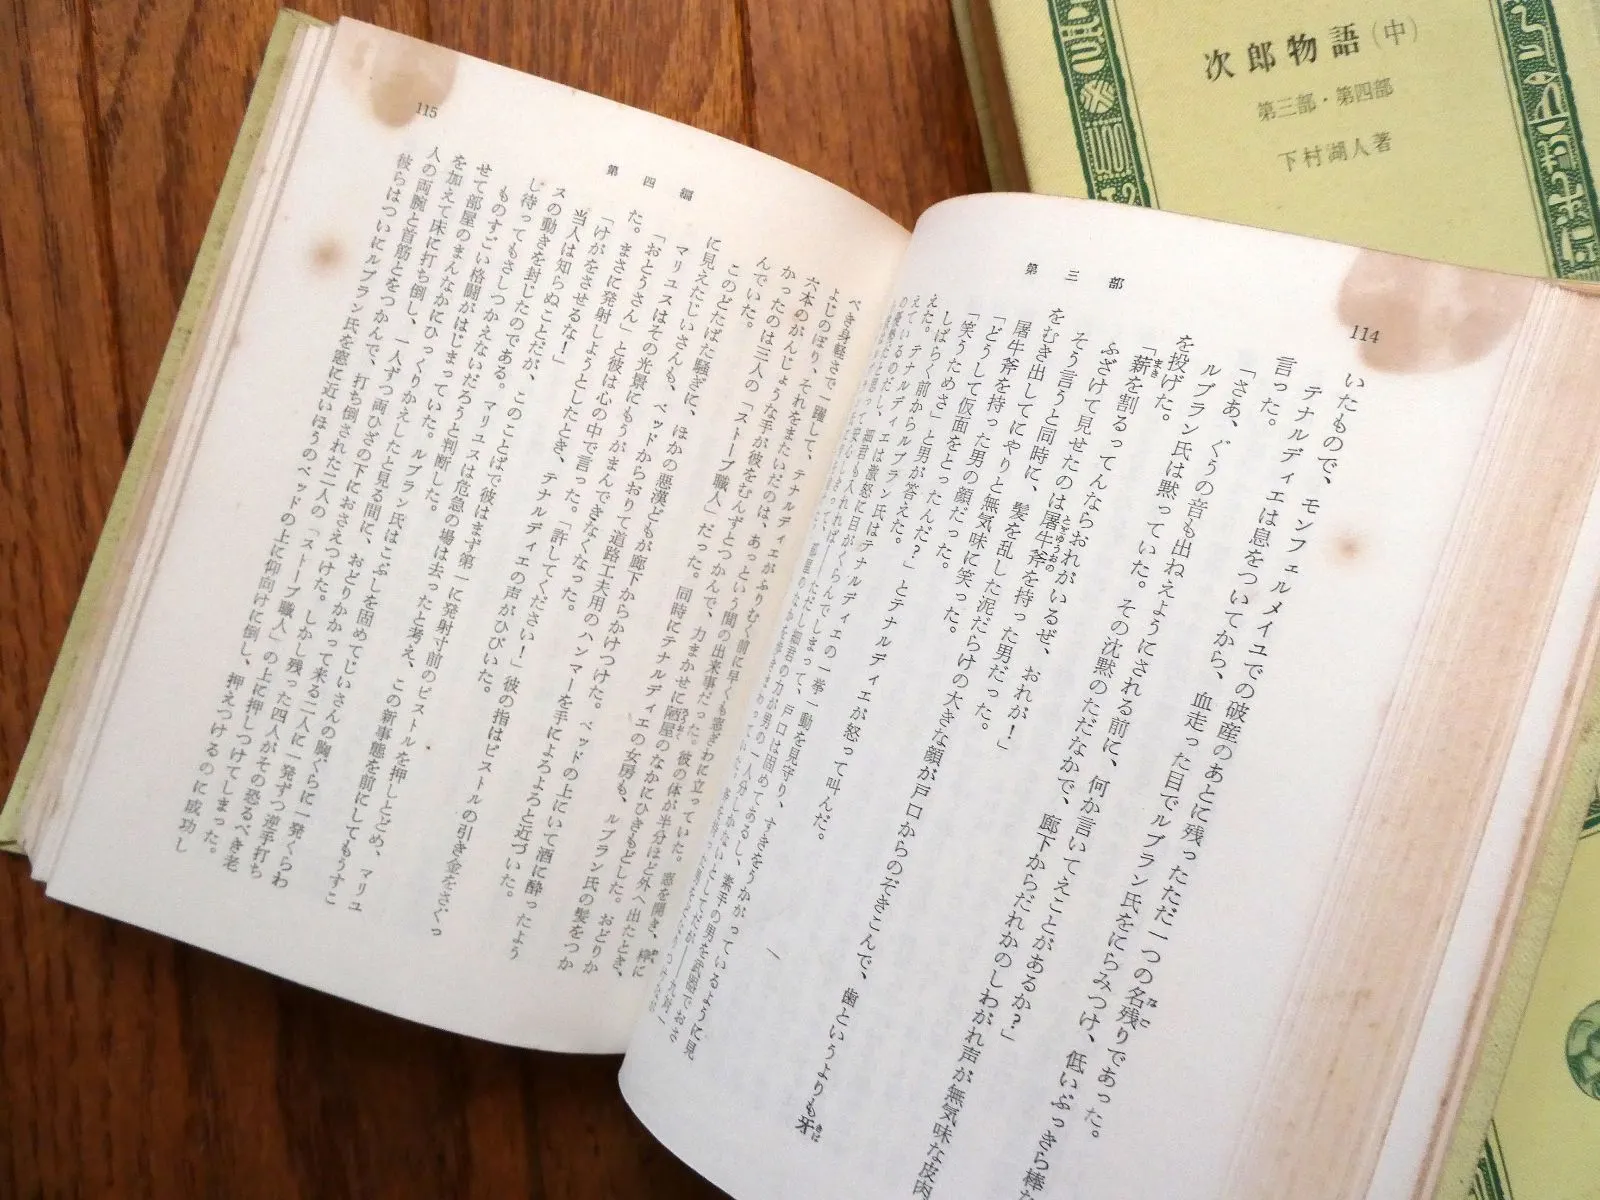 次郎物語(中)
第三部・第四部
下村湖人著
114
第三部
いたもので、モンフェルメイユでの破産のあとに残ったただ一つの名残りであった。
テナルディエは息をついてから、血走った目でルブラン氏をにらみつけ、低いぶっきら棒な
言った。
「さあ、ぐうの音も出ねえようにされる前に、何か言いてえことがあるか?」
ルブラン氏は黙っていた。その沈黙のただなかで、廊下からだれかのしわがれ声が無気味な皮肉
を投げた。
「薪を割るってんならおれがいるぜ、おれが!」
ふざけて見せたのは屠牛斧を持った男だった。
そう言うと同時に、髪を乱した泥だらけの大きな顔が戸口からのぞきこんで、歯というよりも牙
をむき出してにやりと無気味に笑った。
屠牛斧を持った男の顔だった。
「どうして仮面をとったんだ?」とテナルディエが怒って叫んだ。
「笑うためさ」と男が答えた。
しばらく前からルブラン氏はテナルディエの一挙一動を見守り、すきをうかがっているように見
えた。テナルディエは激怒に目がくらんでしまって、戸口は固めてあるし、素手の男を武器でおさ
えているのだし、
115
第四編
べき身軽さで一躍して、テナルディエがふりむく前に早くも窓ぎわに立っていた。窓を開き、枠に
よじのぼり、それをまたいだのは、あっという間の出来事だった。彼の体が半分ほど外へ出たとき、
六本のがんじょうな手が彼をむんずとつかんで、力まかせに陋屋のなかにひきもどした。おどりか
かったのは三人の「ストーブ職人」だった。同時にテナルディエの女房も、ルブラン氏の髪をつか
んでいた。
このどたばた騒ぎに、ほかの悪漢どもが廊下からかけつけた。ベッドの上にいて酒に酔ったよう
に見えたじいさんも、ベッドからおりて道路工夫用のハンマーを手によろよろと近づいた。
マリユスはその光景にもうがまんできなくなった。
「おとうさん」と彼は心の中で言った。「許してください!」彼の指はピストルの引き金をさぐっ
た。まさに発射しようとしたとき、テナルディエの声がひびいた。
「けがをさせるな!」
当人は知らぬことだが、このことばで彼はまず第一に発射寸前のピストルを押しとどめ、マリユ
スの動きを封じたのである。マリユスは危急の場は去ったと考え、この新事態を前にしてもうすこ
し待ってもさしつかえないだろうと判断した。
ものすごい格闘がはじまっていた。ルブラン氏はこぶしを固めてじいさんの胸ぐらに一発くらわ
せて部屋のまんなかにひっくりかえしたと見る間に、おどりかかって来る二人に一発ずつ逆手打ち
を加えて床に打ち倒し、一人ずつ両ひざの下におさえつけた。しかし残った四人がその恐るべき老
人の両腕と首筋とをつかんで、打ち倒された二人の「ストーブ職人」の上に押しつけてしまった。
彼らはついにルブラン氏を窓に近いほうのベッドの上に仰向けに倒し、押えつけるのに成功し